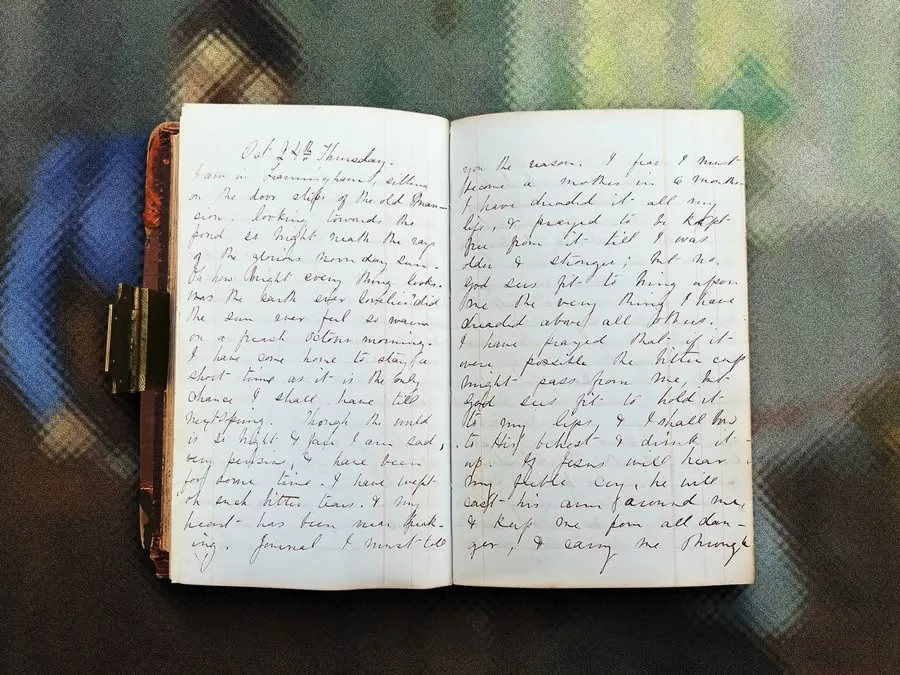 Oct 24th Thursday.
I am in Framingham, sitting
on the door steps of the old Man-
sion, looking towards the
pond so bright neath the rays
of the glorious noon day sun.
Oh how bright every thing looks.
Was the earth ever lovelier? did
the sun ever feel so warm
on a fresh October morning.
I have come home to stay a
short time as it is the only
chance I shall have till
next Spring. Though the world
is so bright & fair I am sad,
very pensive, & have been
for some time. I have wept
oh such bitter tears. & my
heart has been near break-
ing. Journal I must tell
you the reason. I fear I must
become a mother in 6 months
I have dreaded it all my
life, & prayed to be kept
free from it till I was
older & stronger; but no,
God sees fit to bring upon
me the very thing I have
dreaded above all others.
I have prayed that if it
were possible the bitter cup
might pass from me, but
God sees fit to hold it
to my lips, & I shall bow
to His behest & drink it
up. If Jesus will hear
my feeble cry, he will
cast his arm around me,
& keep me from all dan-
ger, & carry me through